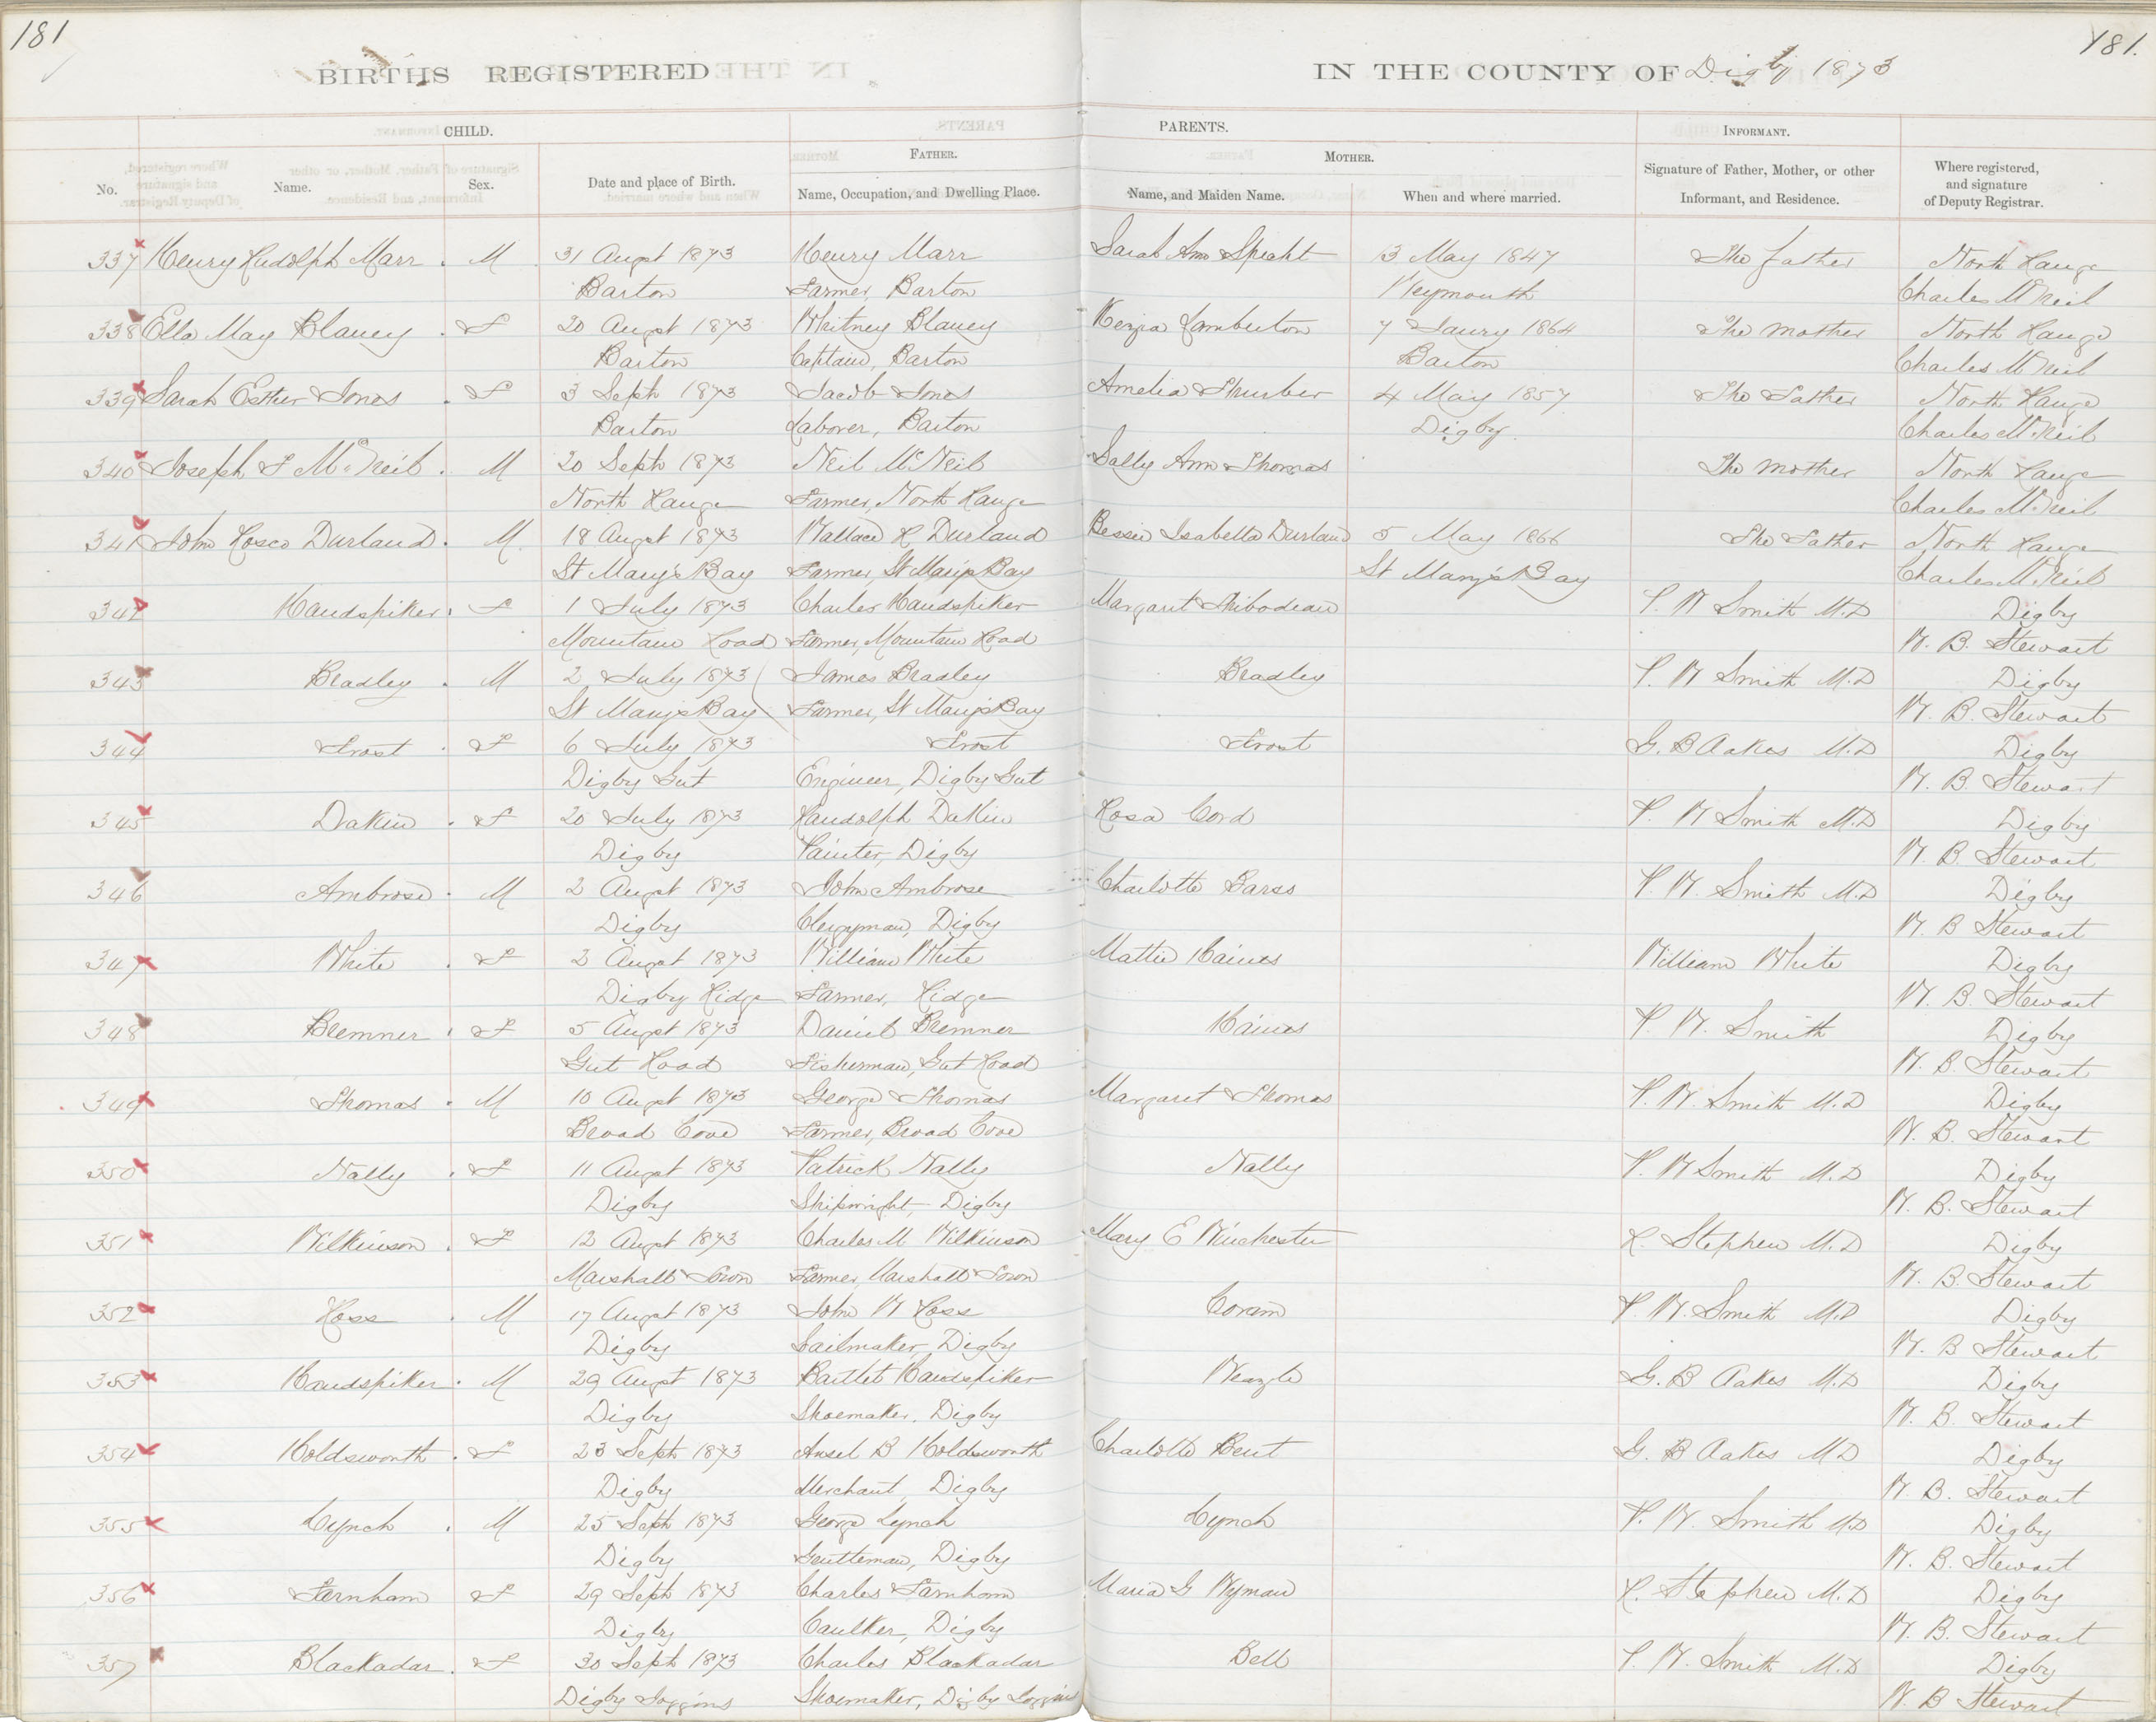 181
181.
BIRTHS REGISTERED IN THE COUNTY OF Digby 1873
CHILD. PARENTS. INFORMANT.
FATHER. MOTHER.
No. Name. Sex. Date and place of Birth. Name, Occupation, and Dwelling Place. Name, and Maiden Name. When and where married. Signature of Father, Mother, or other Informant, and Residence. Where registered, and signature of Deputy Registrar.
337 Henry Rudolph Marr . M 31 Augst 1873 Henry Marr Sarah Ann Speaht 13 May 1847 The father North Range
Barton Farmer, Barton Weymouth Charles McNeil
338 Ella May Blaney . F 20 Augst 1873 Whitney Blaney Kezia Lamberton 7 Jany 1864 The Mother North Range
Barton Captain, Barton Barton Charles McNeil
339 Sarah Esther Jones . F 3 Septr 1873 Jacob Jones Amelia Thurber 4 May 1857 The Father North Range
Barton Laborer, Barton Digby. Charles McNeil
340 Joseph F McNeil . M 20 Septr 1873 Neil McNeil Sally Ann Thomas The Mother North Range
North Range Farmer, North Range Charles McNeil
341 John Rosco Durland . M. 18 Augst 1873 Wallace H Durland Bessie Isabella Durland 5 May 1866 The Father North Range
St Mary's Bay Farmer, St Mary's Bay St Mary's Bay Charles McNeil
342 Handspiker . F 1 July 1873 Charles Handspiker Margaret Thibodeau P. W Smith M.D Digby
Mountain Road Farmer, Mountain Road W. B. Stewart
343 Bradley . M 2 July 1873 James Bradley Bradley P. W Smith M.D Digby
St Mary's Bay Farmer, St Mary's Bay W. B. Stewart
344 Trost . F 6 July 1873 Trost Trost G. B Oakes M.D Digby
Digby Gut Engineer, Digby Gut W. B. Stewart
345 Dakin . F 20 July 1873 Randolph Dakin Rosa Cord P. W Smith M.D Digby
Digby Painter, Digby W. B. Stewart
346 Ambrose . M 2 Augst 1873 John Ambrose Charlotte Barss P. W. Smith M.D Digby
Digby Clergyman, Digby W. B Stewart
347 White . F 2 Augst 1873 William White Mattie Haines William White Digby
Digby Ridge Farmer, Ridge W. B. Stewart
348 Bremner . F 5 Augst 1873 Daniel Bremner Haines P. W. Smith Digby
Gut Road Fisherman, Gut Road W. B. Stewart
349 Thomas . M 10 Augst 1873 George Thomas Margaret Thomas P. W. Smith M.D Digby
Broad Cove Farmer, Broad Cove W. B. Stewart
350 Nally . F 11 Augst 1873 Patrick Nally Nally P. W Smith M.D Digby
Digby Shipwright, Digby W. B. Stewart
351 Wilkinson . F 12 Augst 1873 Charles M Wilkinson Mary E Winchester R. Stephen M.D Digby
Marshall Town Farmer, Marshall Town W. B. Stewart
352 Ross . M 17 Augst 1873 John W Ross Coram P. W. Smith M.D Digby
Digby Sailmaker, Digby W. B Stewart
353 Handspiker . M 29 Augst 1873 Bartlet Handspiker G. B Oakes M.D Digby
Digby Shoemaker, Digby W. B. Stewart
354 Holdsworth . F 23 Septr 1873 Ansel B Holdsworth Charlotte Bent G. B Oakes MD Digby
Digby Merchant, Digby W. B. Stewart
355 Lynch . M 25 Septr 1873 George Lynch Lynch P. W. Smith M.D Digby
Digby Gentleman, Digby W. B. Stewart
356 Farnham . F 29 Septr 1873 Charles Farnham Maria G Wyman R. Stephen M.D Digby
Digby Caulker, Digby W. B. Stewart
357 Blackadar . F 30 Septr 1873 Charles Blackadar Bell P. W. Smith M.D Digby
Digby Joggins Shoemaker, Digby Joggins W. B Stewart